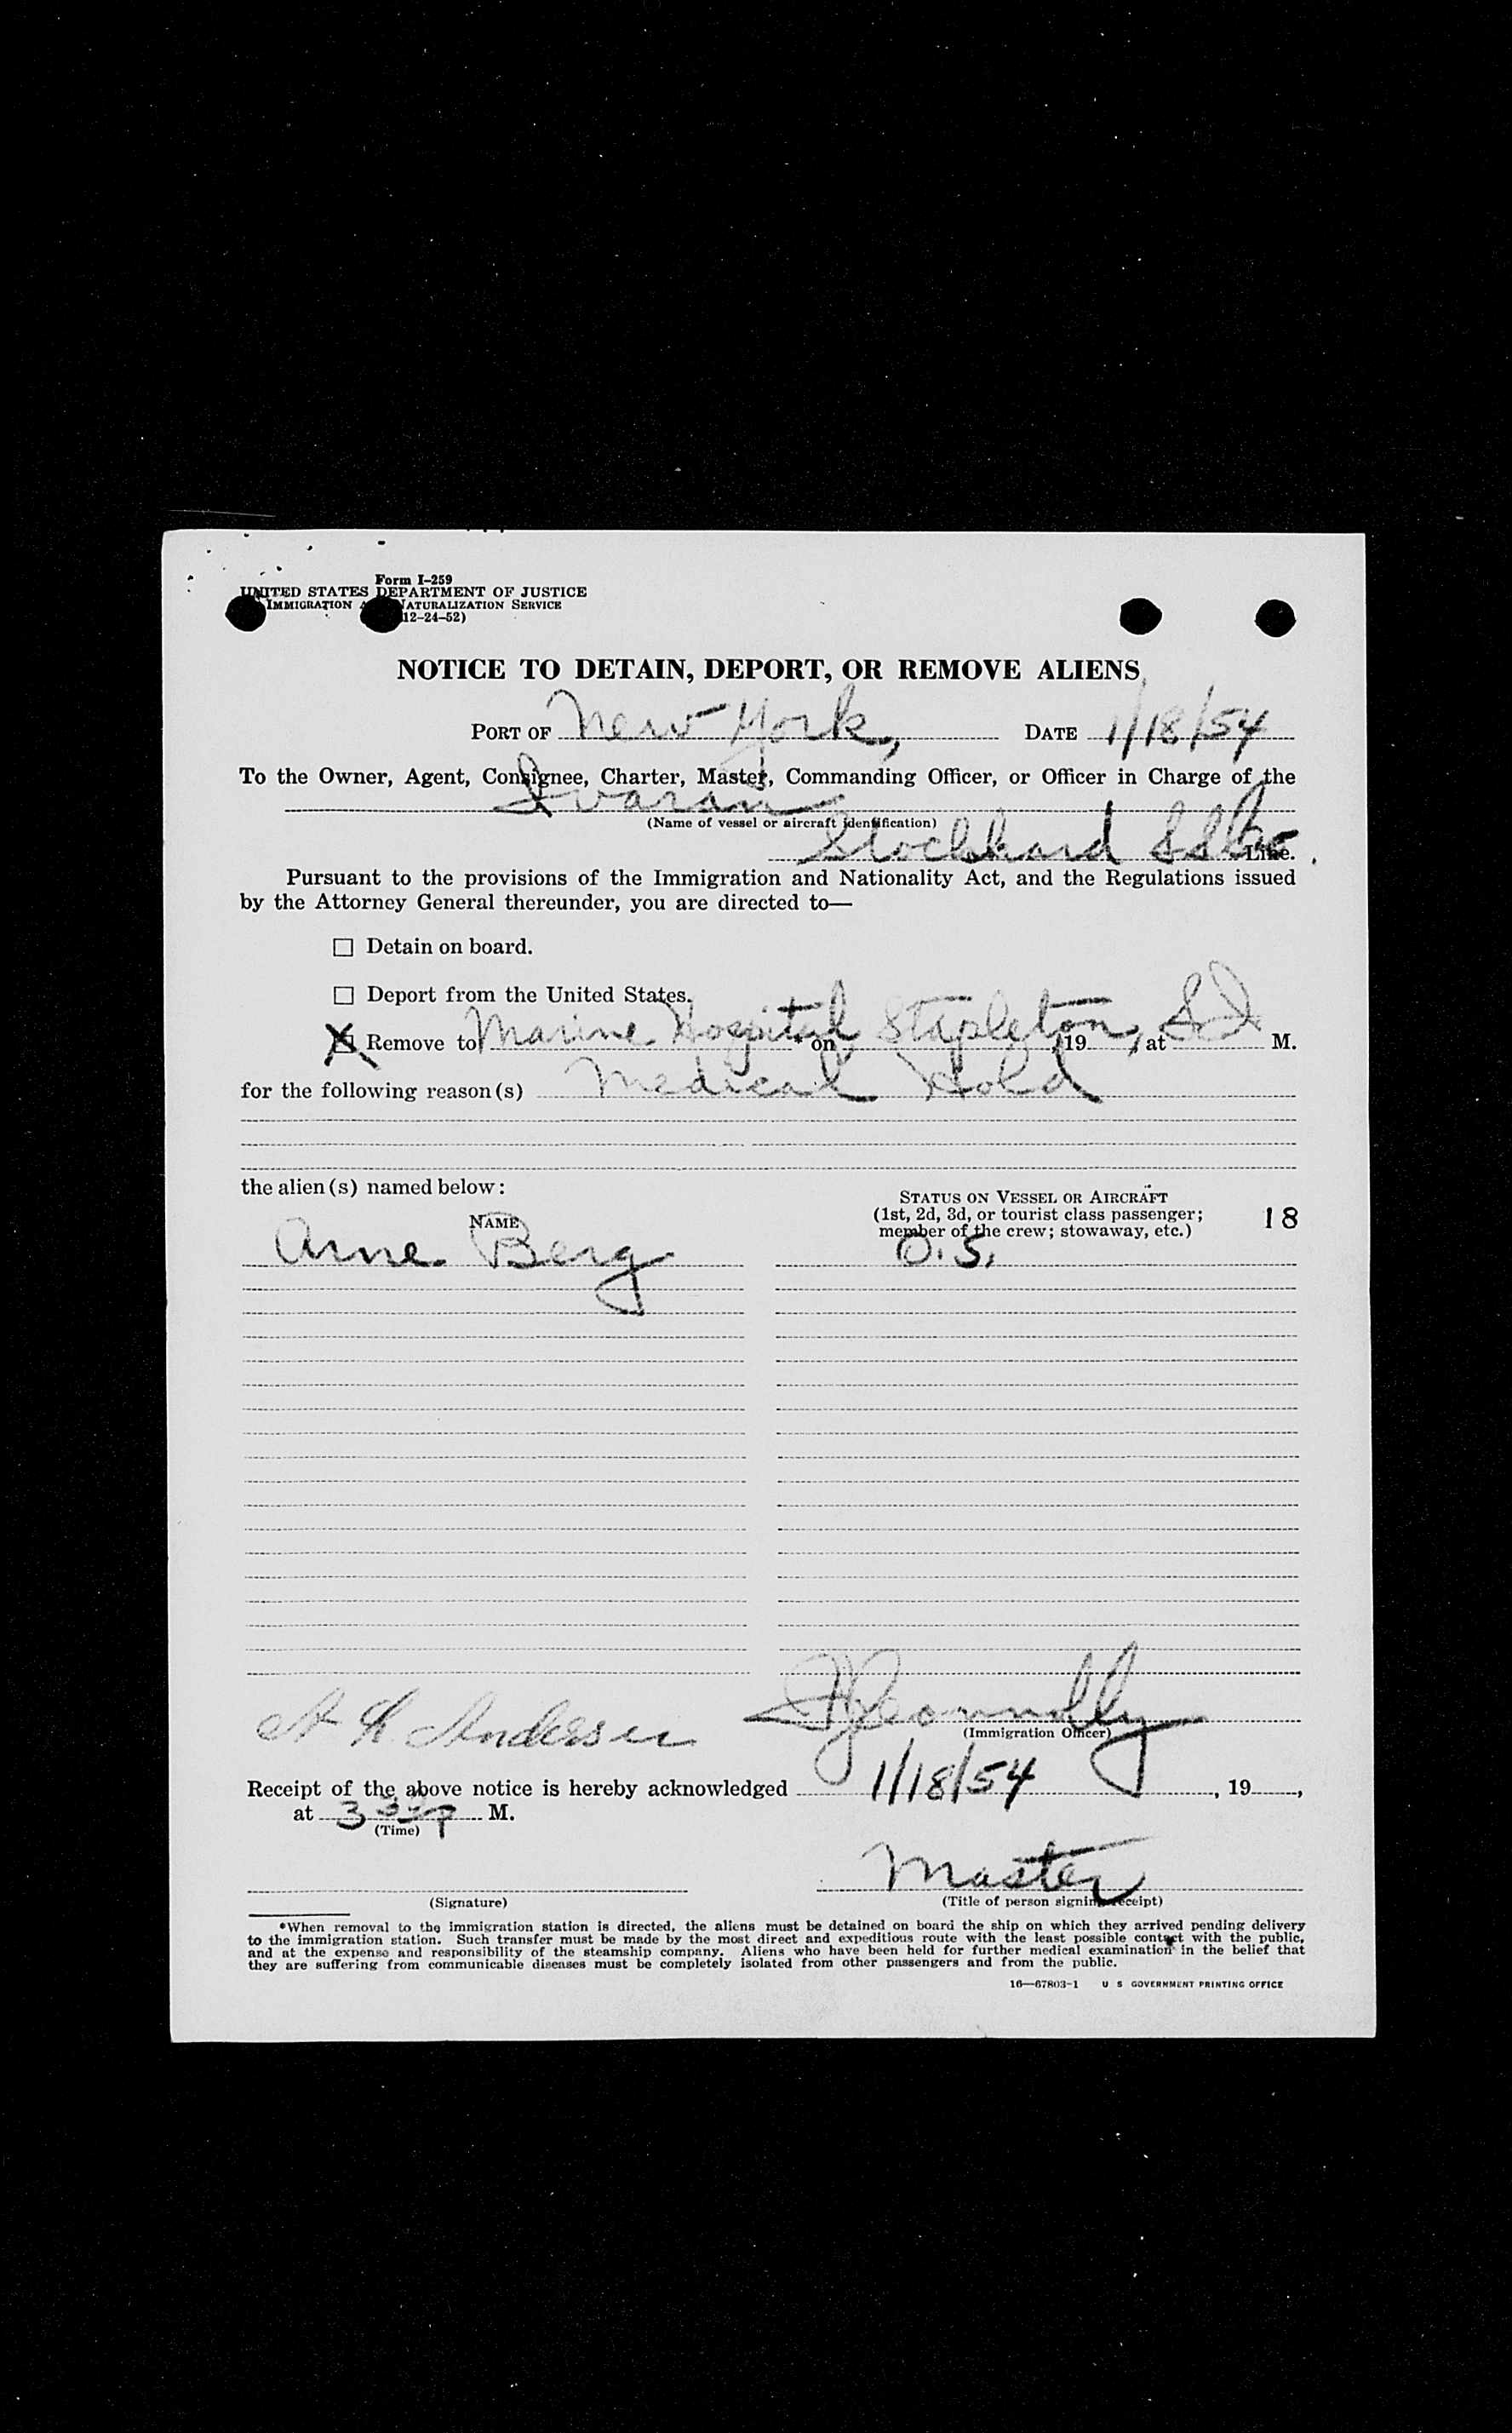 Form I-259
UNITED STATES DEPARTMENT OF JUSTICE
IMMIGRATION NATURALIZATION SERVICE
12-24-52)
NOTICE TO DETAIN, DEPORT, OR REMOVE ALIENS
PORT OF New York, DATE 1/18/54
To the Owner, Agent, Consignee, Charter, Master, Commanding Officer, or Officer in Charge of the
Ivaran
(Name of vessel or aircraft identification)
Stockhard Line.
Pursuant to the provisions of the Immigration and Nationality Act, and the Regulations issued
by the Attorney General thereunder, you are directed to—
☐ Detain on board.
☐ Deport from the United States.
☒ Remove to Marine Hospital * on Stapleton, 19 , at S I M.
for the following reason(s) Medical Hold
the alien(s) named below:
NAME
STATUS ON VESSEL OR AIRCRAFT
(1st, 2d, 3d, or tourist class passenger;
member of the crew; stowaway, etc.)
18
Arne Berg O.S.
Andersen Connolly
(Immigration Officer)
Receipt of the above notice is hereby acknowledged 1/18/54, 19 ,
at 3 p M.
(Time)
Master
(Signature) (Title of person signing receipt)
*When removal to the immigration station is directed, the aliens must be detained on board the ship on which they arrived pending delivery
to the immigration station. Such transfer must be made by the most direct and expeditious route with the least possible contact with the public,
and at the expense and responsibility of the steamship company. Aliens who have been held for further medical examination in the belief that
they are suffering from communicable diseases must be completely isolated from other passengers and from the public.
16—67803-1 U S GOVERNMENT PRINTING OFFICE